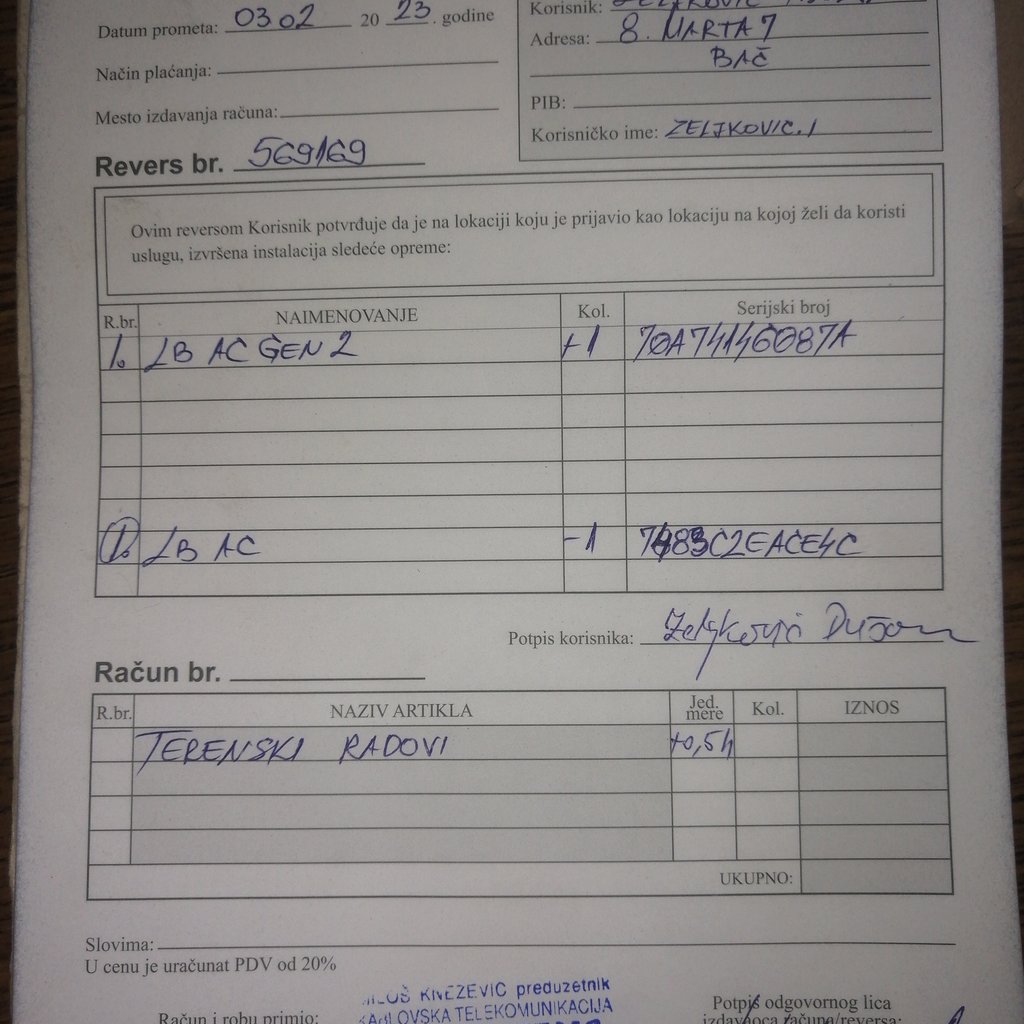 Datum prometa: 03 02 20 23. godine
Korisnik:
Adresa: 8. MARTA 7
BAČ
Način plaćanja:
PIB:
Mesto izdavanja računa:
Korisničko ime: ZELJKOVIC.I
Revers br. 569169
Ovim reversom Korisnik potvrđuje da je na lokaciji koju je prijavio kao lokaciju na kojoj želi da koristi
uslugu, izvršena instalacija sledeće opreme:
R.br. NAIMENOVANJE Kol. Serijski broj
1. LB AC GEN 2 +1 70A74146087A
1. LB AC -1 7483C2EACE4C
Potpis korisnika: Zeljković Dušan
Račun br.
R.br. NAZIV ARTIKLA Jed. mere Kol. IZNOS
TERENSKI RADOVI +0,5h
UKUPNO:
Slovima:
U cenu je uračunat PDV od 20%
KNEZEVIC preduzetnik
Potpis odgovornog lica
TELEKOMUNIKACIJA
Račun i robu primio:
izdavaoca računa/reversa: